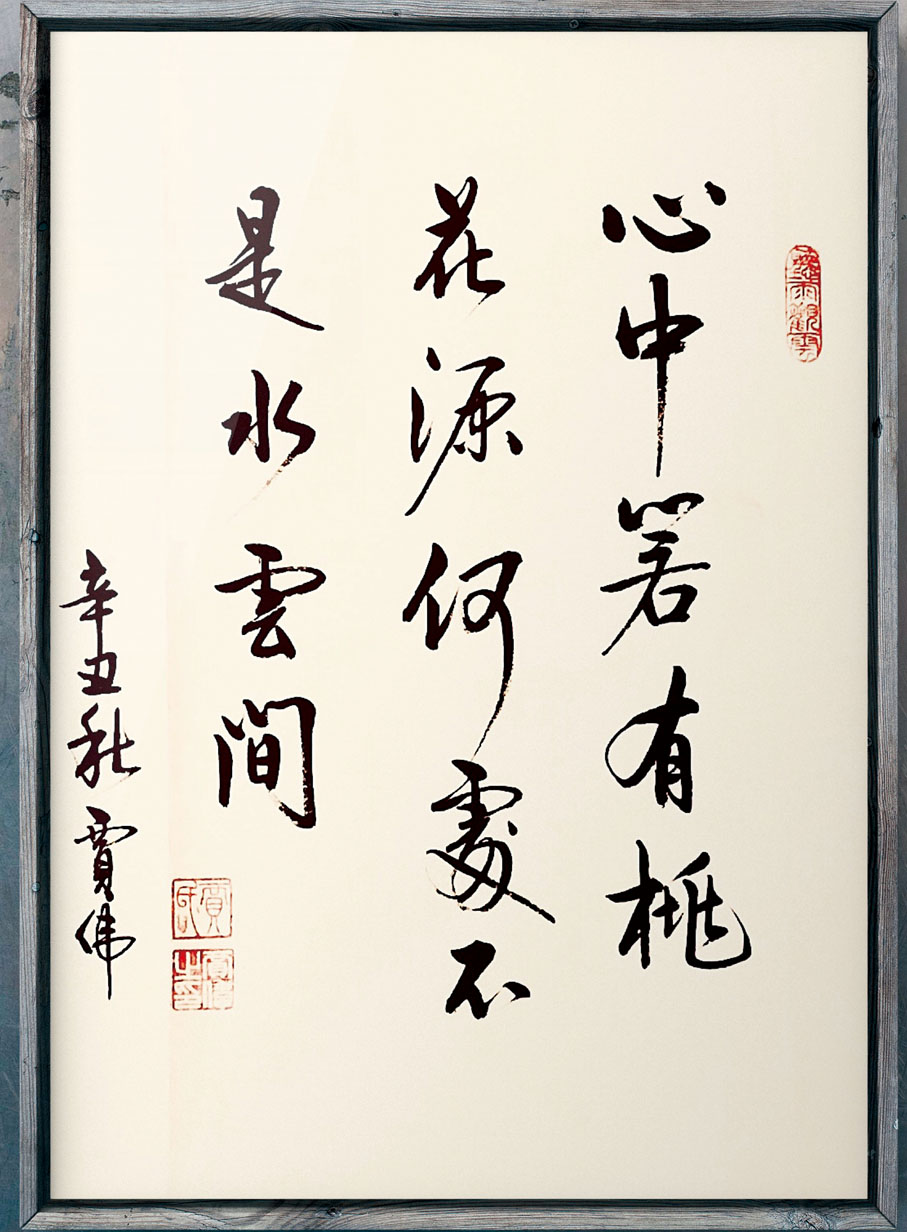 心中若有桃
花源何處不
是水雲間
辛丑秋賈偉
賈氏